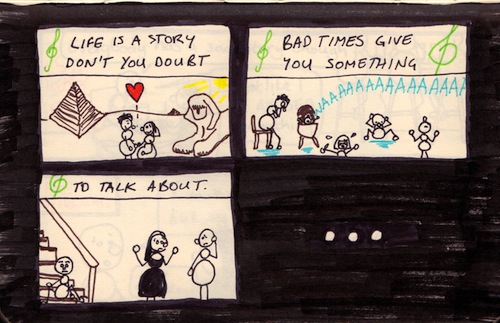 LIFE IS A STORY
DON'T YOU DOUBT
BAD TIMES GIVE
YOU SOMETHING
WAAAAAAAAAAAAAAA
TO TALK ABOUT.
...